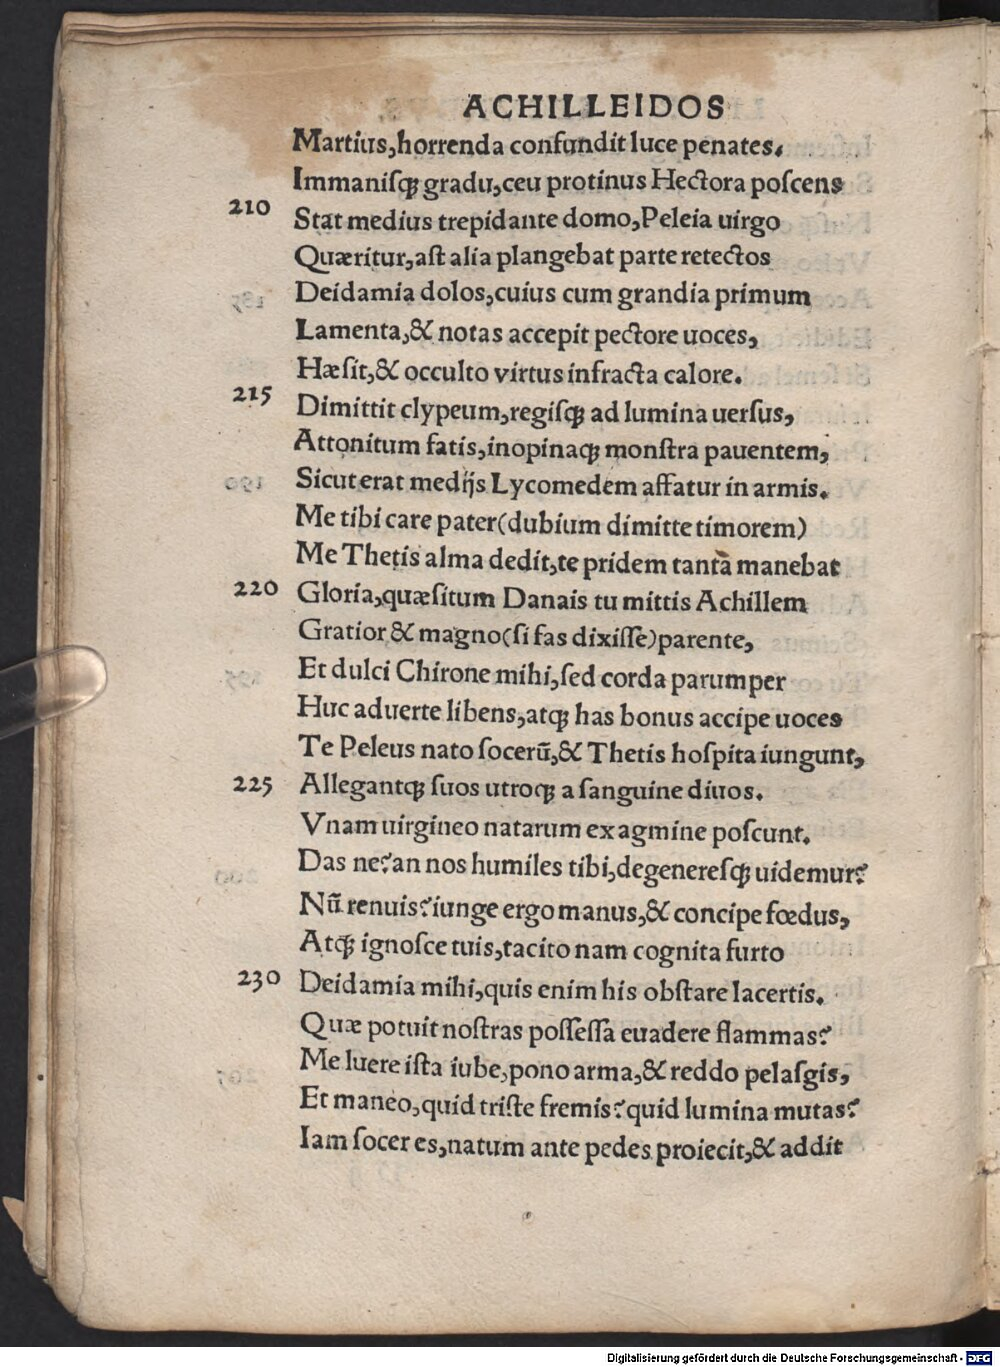 ACHILLEIDOS
Martius, horrenda confundit luce penates.
Immanisqꝫ gradu, ceu protinus Hectora poscens
210 Stat medius trepidante domo, Peleia uirgo
Quæritur, ast alia plangebat parte retectos
Deidamia dolos, cuius cum grandia primum
Lamenta, & notas accepit pectore uoces,
Hæsit, & occulto virtus infracta calore.
215 Dimittit clypeum, regisqꝫ ad lumina uersus,
Attonitum fatis, inopinaqꝫ monstra pauentem,
Sicut erat medijs Lycomedem affatur in armis.
Me tibi care pater (dubium dimitte timorem)
Me Thetis alma dedit, te pridem tanta manebat
220 Gloria, quæsitum Danais tu mittis Achillem
Gratior & magno (si fas dixisse) parente,
Et dulci Chirone mihi, sed corda parumper
Huc aduerte libens, atqꝫ has bonus accipe uoces
Te Peleus nato socerū, & Thetis hospita iungunt,
225 Allegantqꝫ suos utroqꝫ a sanguine diuos.
Vnam uirgineo natarum ex agmine poscunt.
Das ne? an nos humiles tibi, degeneresqꝫ uidemur?
Nū renuis? iunge ergo manus, & concipe fœdus,
Atqꝫ ignosce tuis, tacito nam cognita furto
230 Deidamia mihi, quis enim his obstare lacertis.
Quæ potuit nostras possessa euadere flammas?
Me luere ista iube, pono arma, & reddo pelasgis,
Et maneo, quid triste fremis? quid lumina mutas?
Iam socer es, natum ante pedes proiecit, & addit
Digitalisierung gefördert durch die Deutsche Forschungsgemeinschaft - DFG